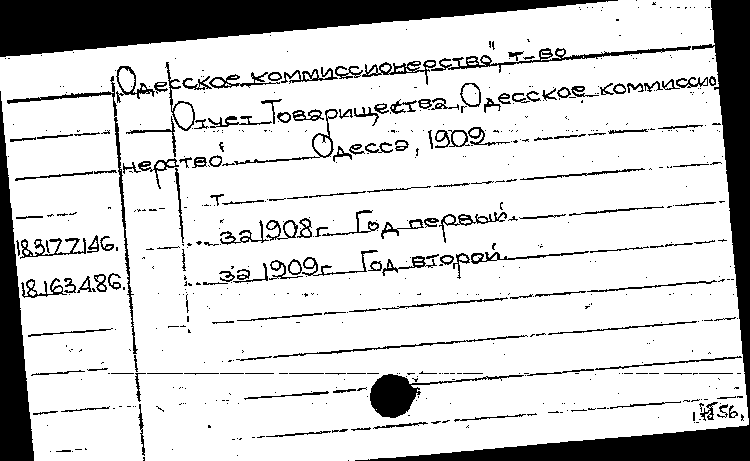 „Одесское коммиссионерство", т-во
Отчет Товарищества „Одесское коммиссио
нерство" ..... Одесса, 1909.
т
18.317.7.146. ... за 1908г. Год первый.
18.163.4.86. ... за 1909г. Год второй.
56.